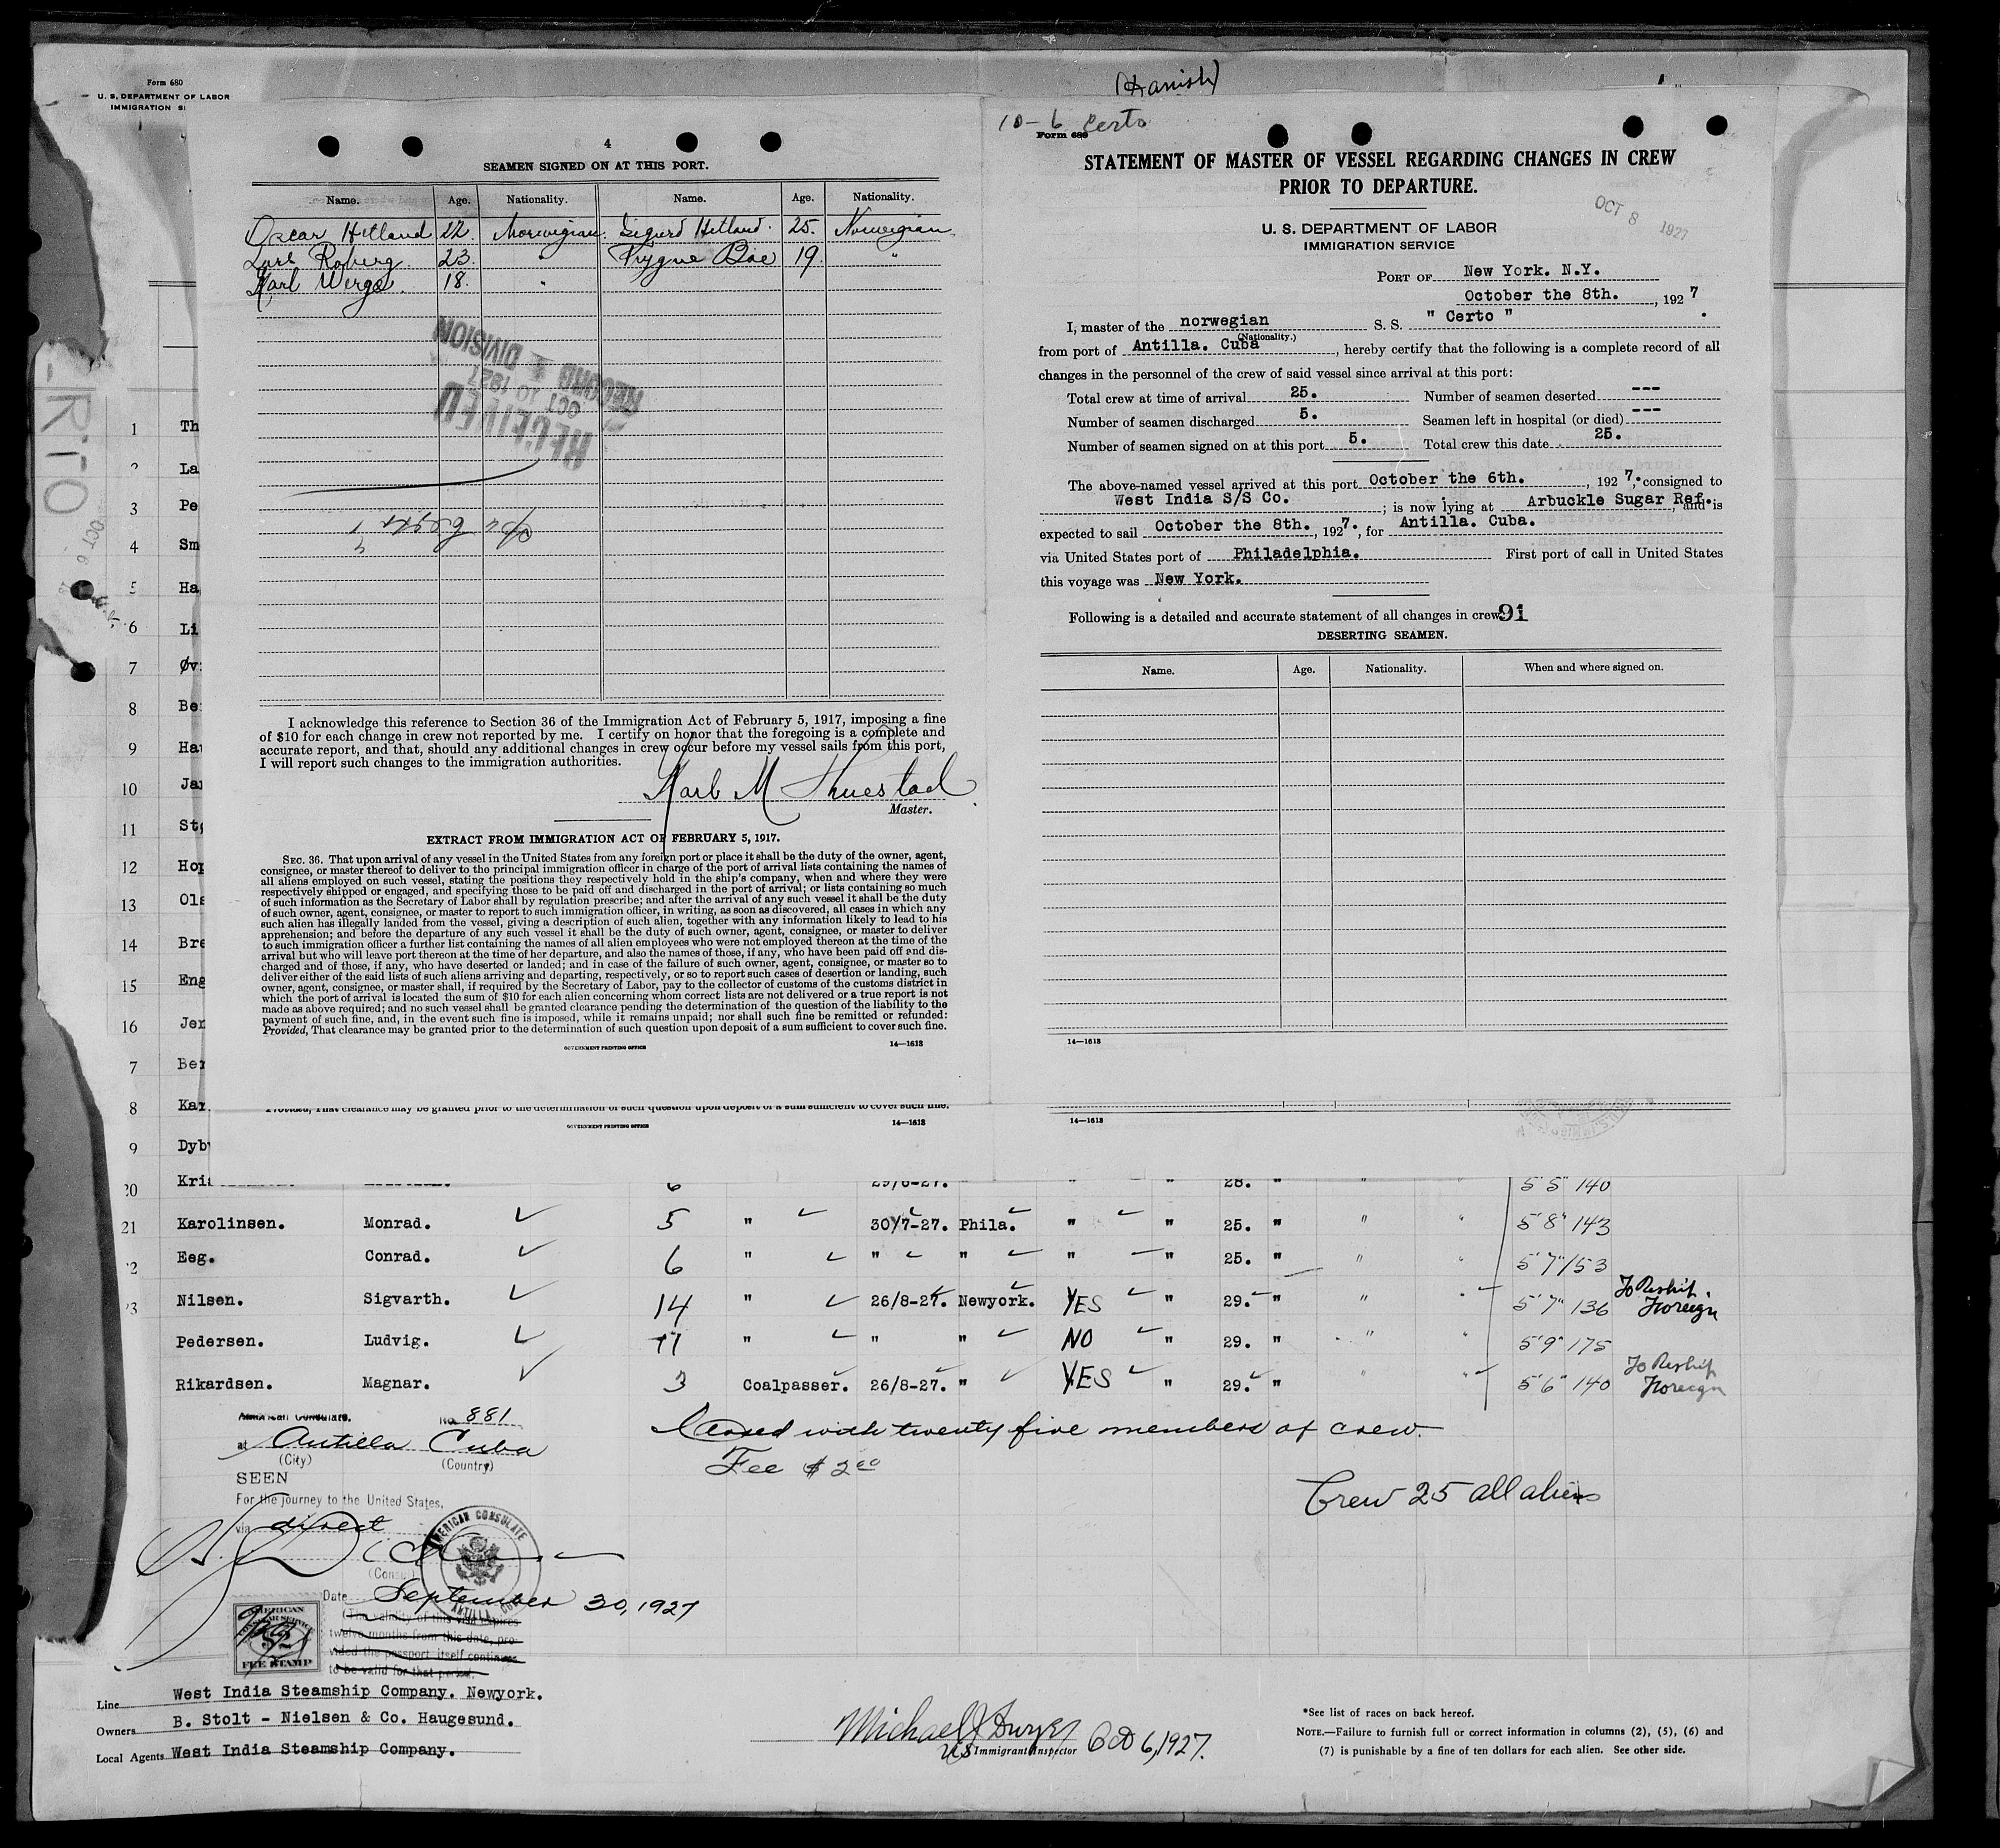 Form 680
U. S. DEPARTMENT OF LABOR
IMMIGRATION
4
SEAMEN SIGNED ON AT THIS PORT.
Name. Age. Nationality. Name. Age. Nationality.
Oscar Hetland 22. Norwegian. Sigurd Hetland. 25. Norwegian
Roberg 23. " Trygve Boe 19. "
Karl 18. "
RECEIVED
OCT 10 1927
RECORD DIVISION
I acknowledge this reference to Section 36 of the Immigration Act of February 5, 1917, imposing a fine
of $10 for each change in crew not reported by me. I certify on honor that the foregoing is a complete and
accurate report, and that, should any additional changes in crew occur before my vessel sails from this port,
I will report such changes to the immigration authorities.
Karl M
Master.
EXTRACT FROM IMMIGRATION ACT OF FEBRUARY 5, 1917.
SEC. 36. That upon arrival of any vessel in the United States from any foreign port or place it shall be the duty of the owner, agent,
consignee, or master thereof to deliver to the principal immigration officer in charge of the port of arrival lists containing the names of
all aliens employed on such vessel, stating the positions they respectively hold in the ship's company, when and where they were
respectively shipped or engaged, and specifying those to be paid off and discharged in the port of arrival; or lists containing so much
of such information as the Secretary of Labor shall by regulation prescribe; and after the arrival of any such vessel it shall be the duty
of such owner, agent, consignee, or master to report to such immigration officer, in writing, as soon as discovered, all cases in which any
such alien has illegally landed from the vessel, giving a description of such alien, together with any information likely to lead to his
apprehension; and before the departure of any such vessel it shall be the duty of such owner, agent, consignee, or master to deliver
to such immigration officer a further list containing the names of all alien employees who were not employed thereon at the time of the
arrival but who will leave port thereon at the time of her departure, and also the names of those, if any, who have been paid off and dis-
charged and of those, if any, who have deserted or landed; and in case of the failure of such owner, agent, consignee, or master so to
deliver either of the said lists of such aliens arriving and departing, respectively, or so to report such cases of desertion or landing, such
owner, agent, consignee, or master shall, if required by the Secretary of Labor, pay to the collector of customs of the customs district in
which the port of arrival is located the sum of $10 for each alien concerning whom correct lists are not delivered or a true report is not
made as above required; and no such vessel shall be granted clearance pending the determination of the question of the liability to the
payment of such fine, and, in the event such fine is imposed, while it remains unpaid; nor shall such fine be remitted or refunded:
Provided, That clearance may be granted prior to the determination of such question upon deposit of a sum sufficient to cover such fine.
GOVERNMENT PRINTING OFFICE 14—1613
10-6 Certo
Form 689
STATEMENT OF MASTER OF VESSEL REGARDING CHANGES IN CREW
PRIOR TO DEPARTURE.
OCT 8 1927
U. S. DEPARTMENT OF LABOR
IMMIGRATION SERVICE
PORT OF New York. N.Y.
October the 8th. , 1927
I, master of the norwegian S. S. " Certo " .
(Nationality.)
from port of Antilla. Cuba , hereby certify that the following is a complete record of all
changes in the personnel of the crew of said vessel since arrival at this port:
Total crew at time of arrival 25. Number of seamen deserted ---
Number of seamen discharged 5. Seamen left in hospital (or died) ---
Number of seamen signed on at this port 5. Total crew this date 25.
The above-named vessel arrived at this port October the 6th. , 1927. , consigned to
West India S/S Co. ; is now lying at Arbuckle Sugar Ref. , and is
expected to sail October the 8th. , 1927. , for Antilla. Cuba.
via United States port of Philadelphia. First port of call in United States
this voyage was New York.
Following is a detailed and accurate statement of all changes in crew: 91
DESERTING SEAMEN.
Name. Age. Nationality. When and where signed on.
14—1613
Provided, That clearance may be granted prior to the determination of such question upon deposit of a sum sufficient to cover such fine.
GOVERNMENT PRINTING OFFICE 14—1613 14—1613
1 Th
2 La
3 Pe
4 Sm
5 Ha
6 Li
7 Øv
8 Be
9 Ha
10 Ja
11 St
12 Ho
13 Ols
14 Bre
15 Eng
16 Jer
7 Ber
8 Kar
9 Dyb
20 Kri 6 29/6-27. " " 28. " " " 5'5" 140
21 Karolinsen. Monrad. 5 " 30/7-27. Phila. " " 25. " " " 5'8" 143
2 Eeg. Conrad. 6 " " " " " 25. " " " 5'7" 153
3 Nilsen. Sigvarth. 14 " 26/8-27. Newyork. YES " 29. " " " 5'7" 136 To Reship. Foreign
Pedersen. Ludvig. 11 " " " NO " 29. " " " 5'9" 175
Rikardsen. Magnar. 3 Coalpasser. 26/8-27. " YES " 29. " " " 5'6" 140 To Reship Foreign
American Consulate. No. 881
at Antilla Cuba
(City) (Country)
SEEN
For the journey to the United States,
via direct
(Consul
AMERICAN CONSULATE
ANTILLA, CUBA
Date September 30, 1927
(The validity of this visa expires
twelve months from this date, pro-
vided the passport itself continues
to be valid for that period.
AMERICAN
FEE STAMP
Closed with twenty five members of crew.
Fee $2.00
Crew 25 all aliens
Line West India Steamship Company. Newyork.
Owners B. Stolt - Nielsen & Co. Haugesund.
Local Agents West India Steamship Company.
Michael J Dwyer Oct 6, 1927.
US Immigrant Inspector
*See list of races on back hereof.
NOTE.—Failure to furnish full or correct information in columns (2), (5), (6) and
(7) is punishable by a fine of ten dollars for each alien. See other side.